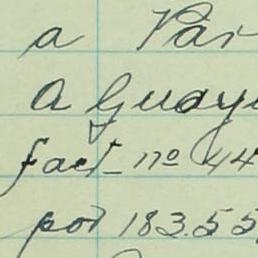 a Par
a Guayu
fact_ nº 44
por 183.55